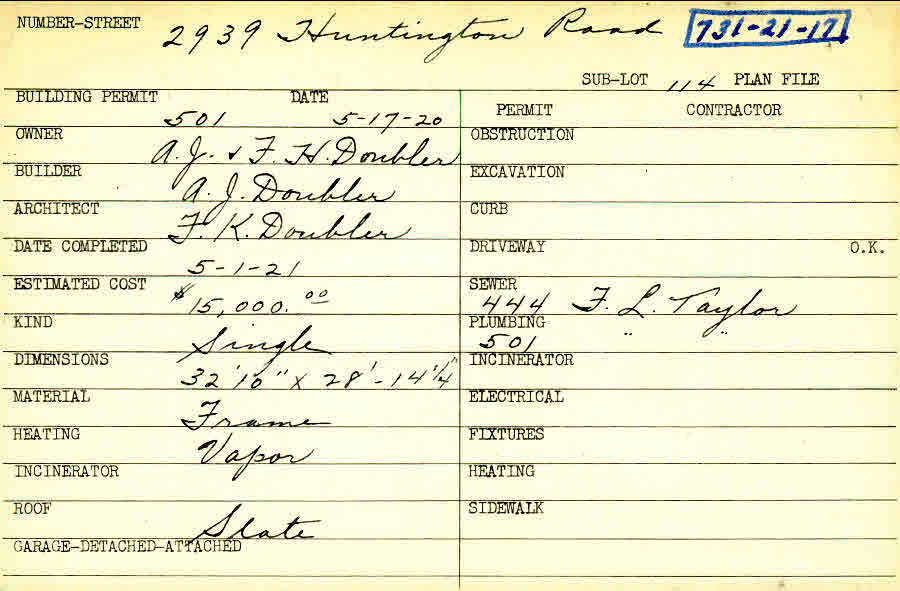 NUMBER-STREET 2939 Huntington Road 731-21-17
SUB-LOT 114 PLAN FILE
BUILDING PERMIT 501 DATE 5-17-20
OWNER A. J. & F. H. Doubler
BUILDER A. J. Doubler
ARCHITECT F. K. Doubler
DATE COMPLETED 5-1-21
ESTIMATED COST $15,000.00
KIND Single
DIMENSIONS 32'10" x 28'-14 1/4"
MATERIAL Frame
HEATING Vapor
INCINERATOR
ROOF Slate
GARAGE-DETACHED-ATTACHED
PERMIT CONTRACTOR
OBSTRUCTION
EXCAVATION
CURB
DRIVEWAY O.K.
SEWER 444 F. L. Taylor
PLUMBING 501 " "
INCINERATOR
ELECTRICAL
FIXTURES
HEATING
SIDEWALK